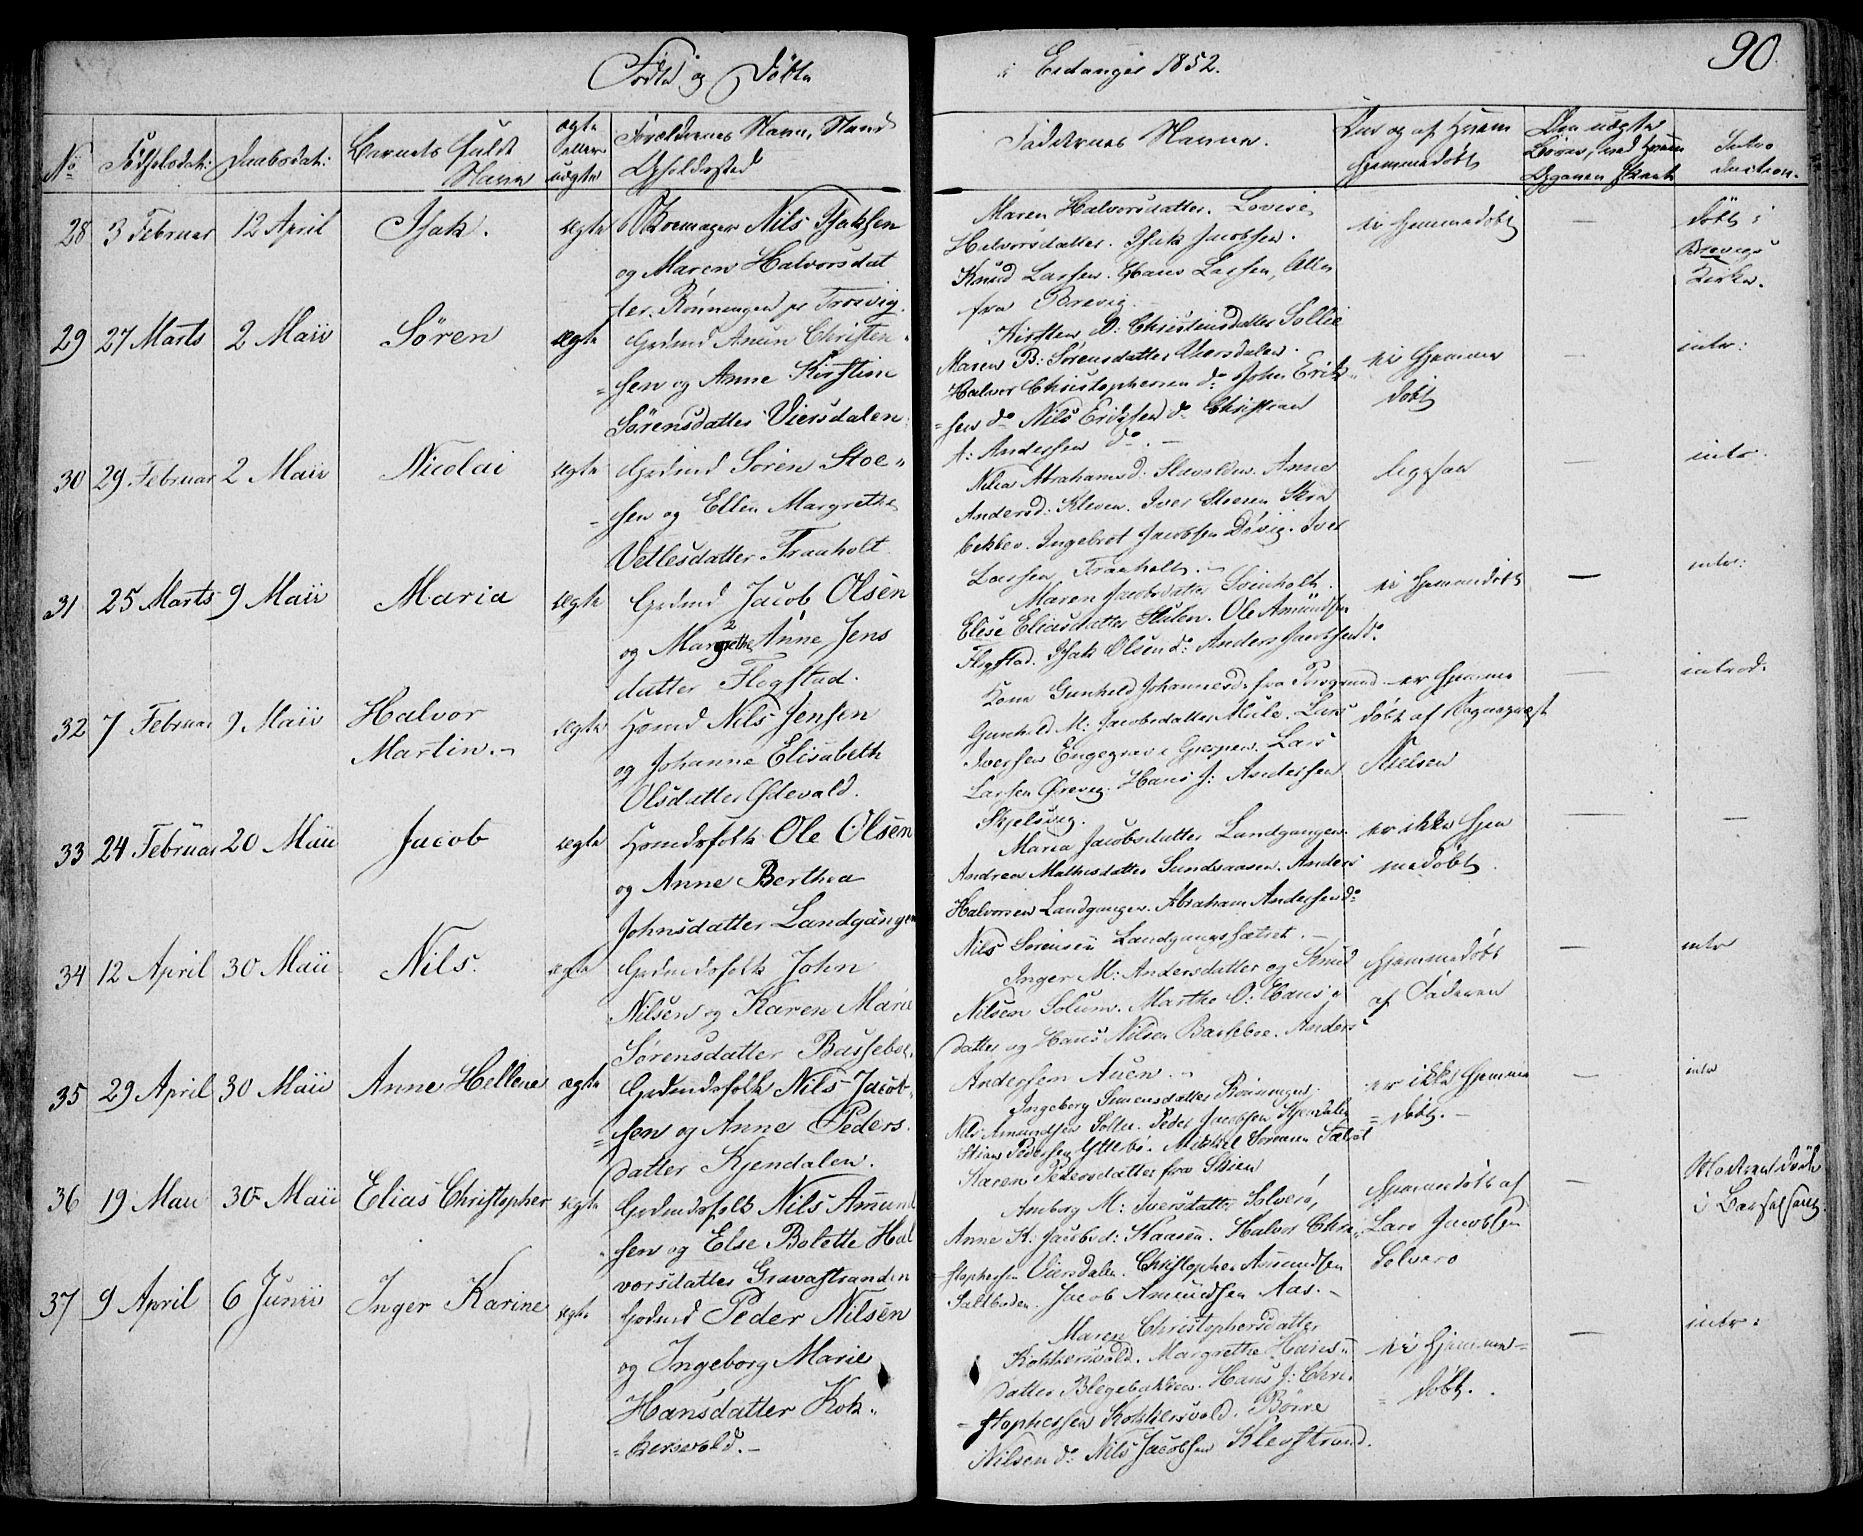 Fødte og Døbte
i Eidanger 1852.
90.
No
Fødselsdat:
Daabsdat:
Barnets fulde
Navn
ægte
eller
uægte
Forældrenes Navn, Stand
Opholdssted
Faddernes Navne.
Om og af Hvem
hjemmedøbt
Intro
duction.
28
3 Februar
12 April
Isak.
ægte
Nils Isaksen
og Maren Halvorsdat
ter. Rønningen pr Trosvig.
Maren Halvorsdatter. Lovise
Halvorsdatter. Isak Jacobsen.
Knud Larsen. Hans Larsen, Alle
fra Brevig.
ei hjemmedøbt
—
døbt i
Brevigs
Kirke.
29
27 Marts
2 Maii
Søren
ægte
Gedmd Amun Christen
sen og Anne Kirstine
Sørensdatter Viersdalen
Kirsten D: Christensdatter Sollie
Maren B: Sørensdatter Viersdalen.
Halvor Christophersen do John Erik
sen do Nils Eriksen do Christian
A: Andersen do. —
ei hjemme
døbt
—
intr:
30
29 Februar
2 Maii
Nicolai
ægte
Gedmd Søren Stoe
sen og Ellen Margrethe
Vetlesdatter Traaholt
Abrahamsd: Anne
Andersd: Kleven. Iver
Ingebret Jacobsen Døvig. Iver
Larsen Traaholt. —
—
intr.
31
25 Marts
9 Maii
Maria
ægte
Gedmd Jacob Olsen
2
og Margrethe Anne Jens
datter Flogstad.
Maren Jacobsdatter Sveinholt.
Elise Eliasdatter Stulen. Ole Amundsen
Flogstad. Isak Olsen do: Anders Jacobsen do.
ei hjemmedøbt
—
intr:
32
7 Februar
9 Maii
Halvor
Martin. —
ægte
Huusmd Nils Jensen
og Johanne Elisabeth
Olsdatter Ødevald.
Kone Gunhild Johannesd. fra Porsgrund
Gunhild M: Jacobsdatter Mule. Lars
Iversen Engegrav i Gjerpen. Lars
Larsen Ørevig. Hans J: Andersen
Skjelsvig.
er hjemme
døbt af
Nielsen
—
introd.
33
24 Februar
20 Maii
Jacob
ægte
Huusmdsfolk Ole Olsen
og Anne Berthea
Johnsdatter Landgangen
Maria Jacobsdatter Landgangen.
Andrea Mathisdatter Sundsaasen. Anders
Halvorsen Landgangen. Abraham Andersen do
Nils Sørensen Landgangssætret. —
er ikke hjem
medøbt.
—
—
34
12 April
30 Maii
Nils.
ægte
Gedmdsfolk John
Nilsen og Karen Marie
Sørensdatter Basseboe.
Inger M: Andersdatter og Knud
Nilsen Solum. Marthe O: Hans
datter og Hans Nilsen Basseboe. Anders
Andersen Auen. —
hjemmedøbt
af Faderen
—
intr
35
29 April
30 Maii
Anne Hellene
ægte
Gedmdsfolk Nils Jacob
sen og Anne Peders
datter Kjendalen.
Ingeborg Simensdatter Rønningen.
Nils Amundsen Sollie. Peder Jacobsen Kjendalen
Karen Pedersdatter fra Skien
er ikke hjemme
døbt. —
—
intr
36
19 Maii
30 Maii
Elias Christopher
ægte
Gedmdsfolk Nils Amund
sen og Else Bolette Hal
vorsdatter Gravastranden
Amborg M: Iversdatter Solverø,
Anne K: Jacobsd: Kaasen. Halvor Chri
stophersen Viersdalen. Christopher Amundsen
Saltboden. Jacob Amundsen Aas. —
hjemmedøbt af
Lars Jacobsen
Solverø
—
Moderen døde
i Barselseng.
37
9 April
6 Junii
Inger Karine
ægte
Gedmd Peder Nilsen
og Ingeborg Marie
Hansdatter Kok
kersvold. —
Maren Christophersdatter
Kokkersvold. Margrethe Hans
datter Blegebakken. Hans J: Chri
stophersen Kokkersvold. Børre
Nilsen do: Nils Jacobsen Klevstrand.
ei hjemme
døbt.
—
intr: